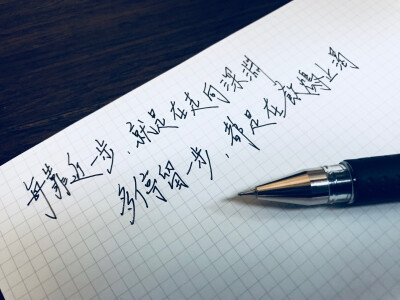 每靠近一步，就是在走向深渊
多停留一步，都是在饮鸩止渴